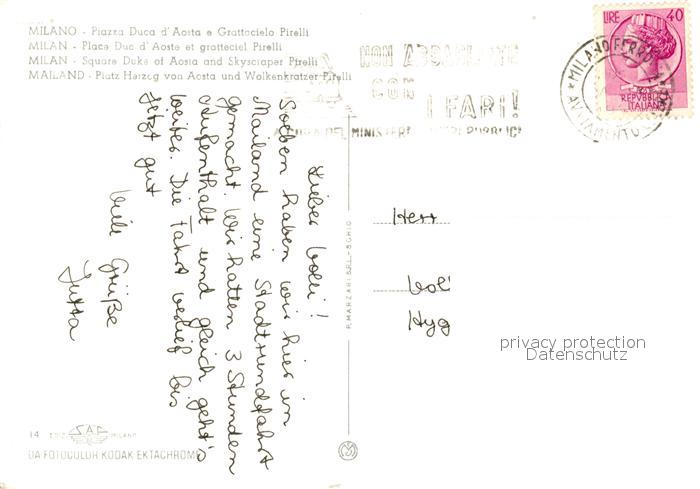 MILANO - Piazza Duca d'Aosta e Grattacielo Pirelli
MILAN - Place Duc d'Aoste et gratteciel Pirelli
MILAN - Square Duke of Aosta and Skyscraper Pirelli
MAILAND - Platz Herzog von Aosta und Wolkenkratzer Pirelli
NON ABBAGLIATE
CON
I FARI!
A CURA DEL MINISTERO
LIRE 40
REPVBBLICA
ITALIANA
MILANO FERROVIA
Lieber Voli!
Soeben haben wir hier in
Mailand eine Stadtrundfahrt
gemacht. Wir hatten 3 Stunden
Aufenthalt und gleich geht's
weiter. Die Fahrt verlief bis
jetzt gut
Viele Grüße
Jutta
P. MARZARI S.R.L. - SCHIO
Herr
Voli
Hyg
privacy protection
Datenschutz
14 EDIZ. SAF MILANO
DA FOTOCOLOR KODAK EKTACHROME